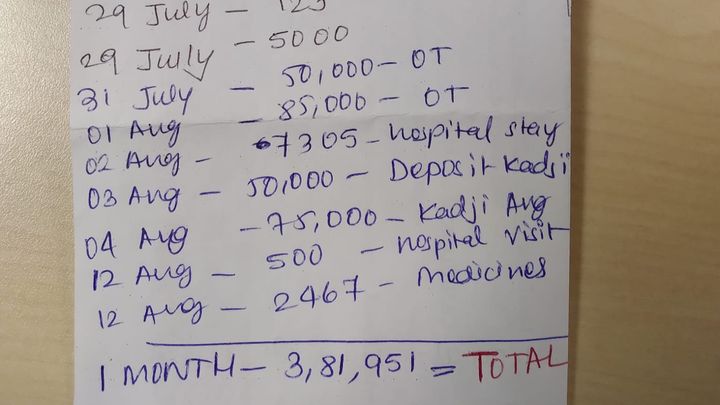 29 July –
29 July – 5000
31 July – 50,000 – OT
01 Aug – 85,000 – OT
02 Aug – – hospital stay
03 Aug – 50,000 – Deposit Kadji
04 Aug – 75,000 – Kadji Aug
12 Aug – 500 – hospital visit
12 Aug – 2467 – Medicines
1 MONTH – 3,81,951 = TOTAL